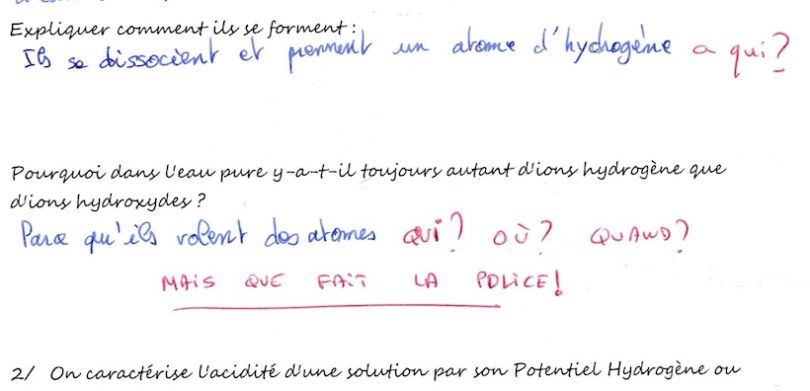 Expliquer comment ils se forment :
Ils se dissocient et prennent un atome d'hydrogène a qui?
Pourquoi dans l'eau pure y-a-t-il toujours autant d'ions hydrogène que
d'ions hydroxydes ?
Parce qu'ils volent des atomes QUI? OÙ? QUAND?
MAIS QUE FAIT LA POLICE!
2/ On caractérise l'acidité d'une solution par son Potentiel Hydrogène ou